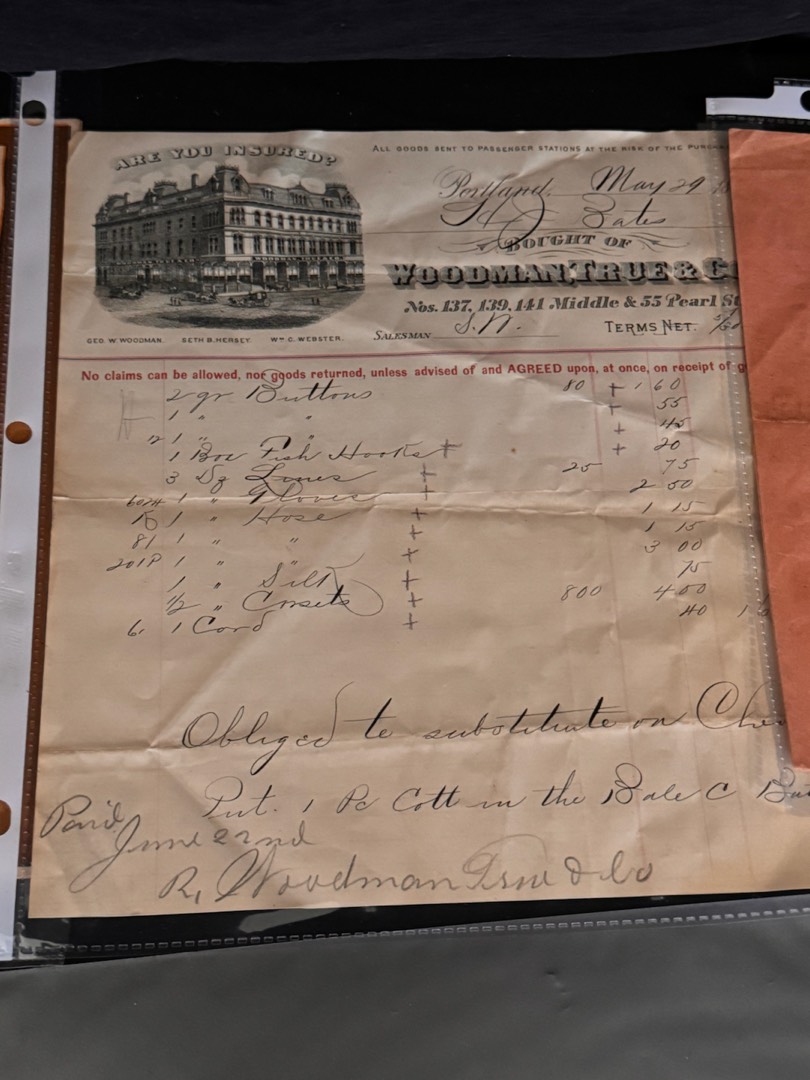 ARE YOU INSURED?
ALL GOODS SENT TO PASSENGER STATIONS AT THE RISK OF THE
Portland, May 29
Bates
BOUGHT OF
WOODMAN, TRUE & C
Nos. 137, 139, 141 Middle & 55 Pearl St
GEO. W. WOODMAN. SETH B. HERSEY. WM C. WEBSTER.
SALESMAN S.W. TERMS NET.
No claims can be allowed, nor goods returned, unless advised of and AGREED upon, at once, on receipt of g
2 gr Buttons 80 + 1 60
1 " " + 55
12 1 " " + 45
1 Box Fish Hooks + + 20
3 Dz Lines + 25 75
1 " Gloves + 2 50
15 1 " Hose + 1 15
81 1 " " + 1 15
201P 1 " " + 3 00
1 " Silk + 75
1/2 " Corsets + 800 4 00
6. 1 Cord + 40
Obliged to substitute on
Put. 1 Pc Cott in the Bale C
Paid
June 22nd
R, Woodman True & Co